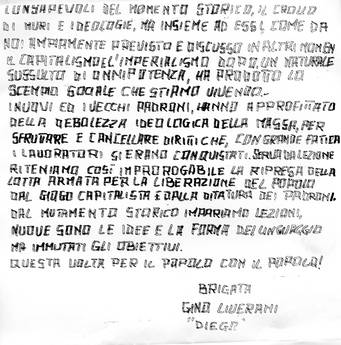 CONSAPEVOLI DEL MOMENTO STORICO, IL CROLLO
DI MURI E IDEOLOGIE, MA INSIEME AD ESSI, COME DA
NOI AMPIAMENTE PREVISTO E DISCUSSO IN ALTRI MOMENTI
IL CAPITALISMO E L'IMPERIALISMO DOPO, UN NATURALE
SUSSULTO DI ONNIPOTENZA, HA PRODOTTO LO
SCEMPIO SOCIALE CHE STIAMO VIVENDO.-
I NUOVI ED I VECCHI PADRONI, HANNO APPROFITTATO
DELLA DEBOLEZZA IDEOLOGICA DELLA MASSA, PER
SFRUTTARE E CANCELLARE DIRITTI CHE, CON GRANDE FATICA
I LAVORATORI SI ERANO CONQUISTATI. SERVA DA LEZIONE
RITENIAMO COSÌ IMPROROGABILE LA RIPRESA DELLA
LOTTA ARMATA PER LA LIBERAZIONE DEL POPOLO
DAL GIOGO CAPITALISTA E DALLA DITATURA DEI PADRONI.
DAL MUTAMENTO STORICO IMPARIAMO LEZIONI,
NUOVE SONO LE IDEE E LA FORMA DEI LINGUAGGIO
MA IMMUTATI GLI OBIETTIVI.
QUESTA VOLTA PER IL POPOLO CON IL POPOLO!
BRIGATA
GINO LIVERANI
"DIEGO"